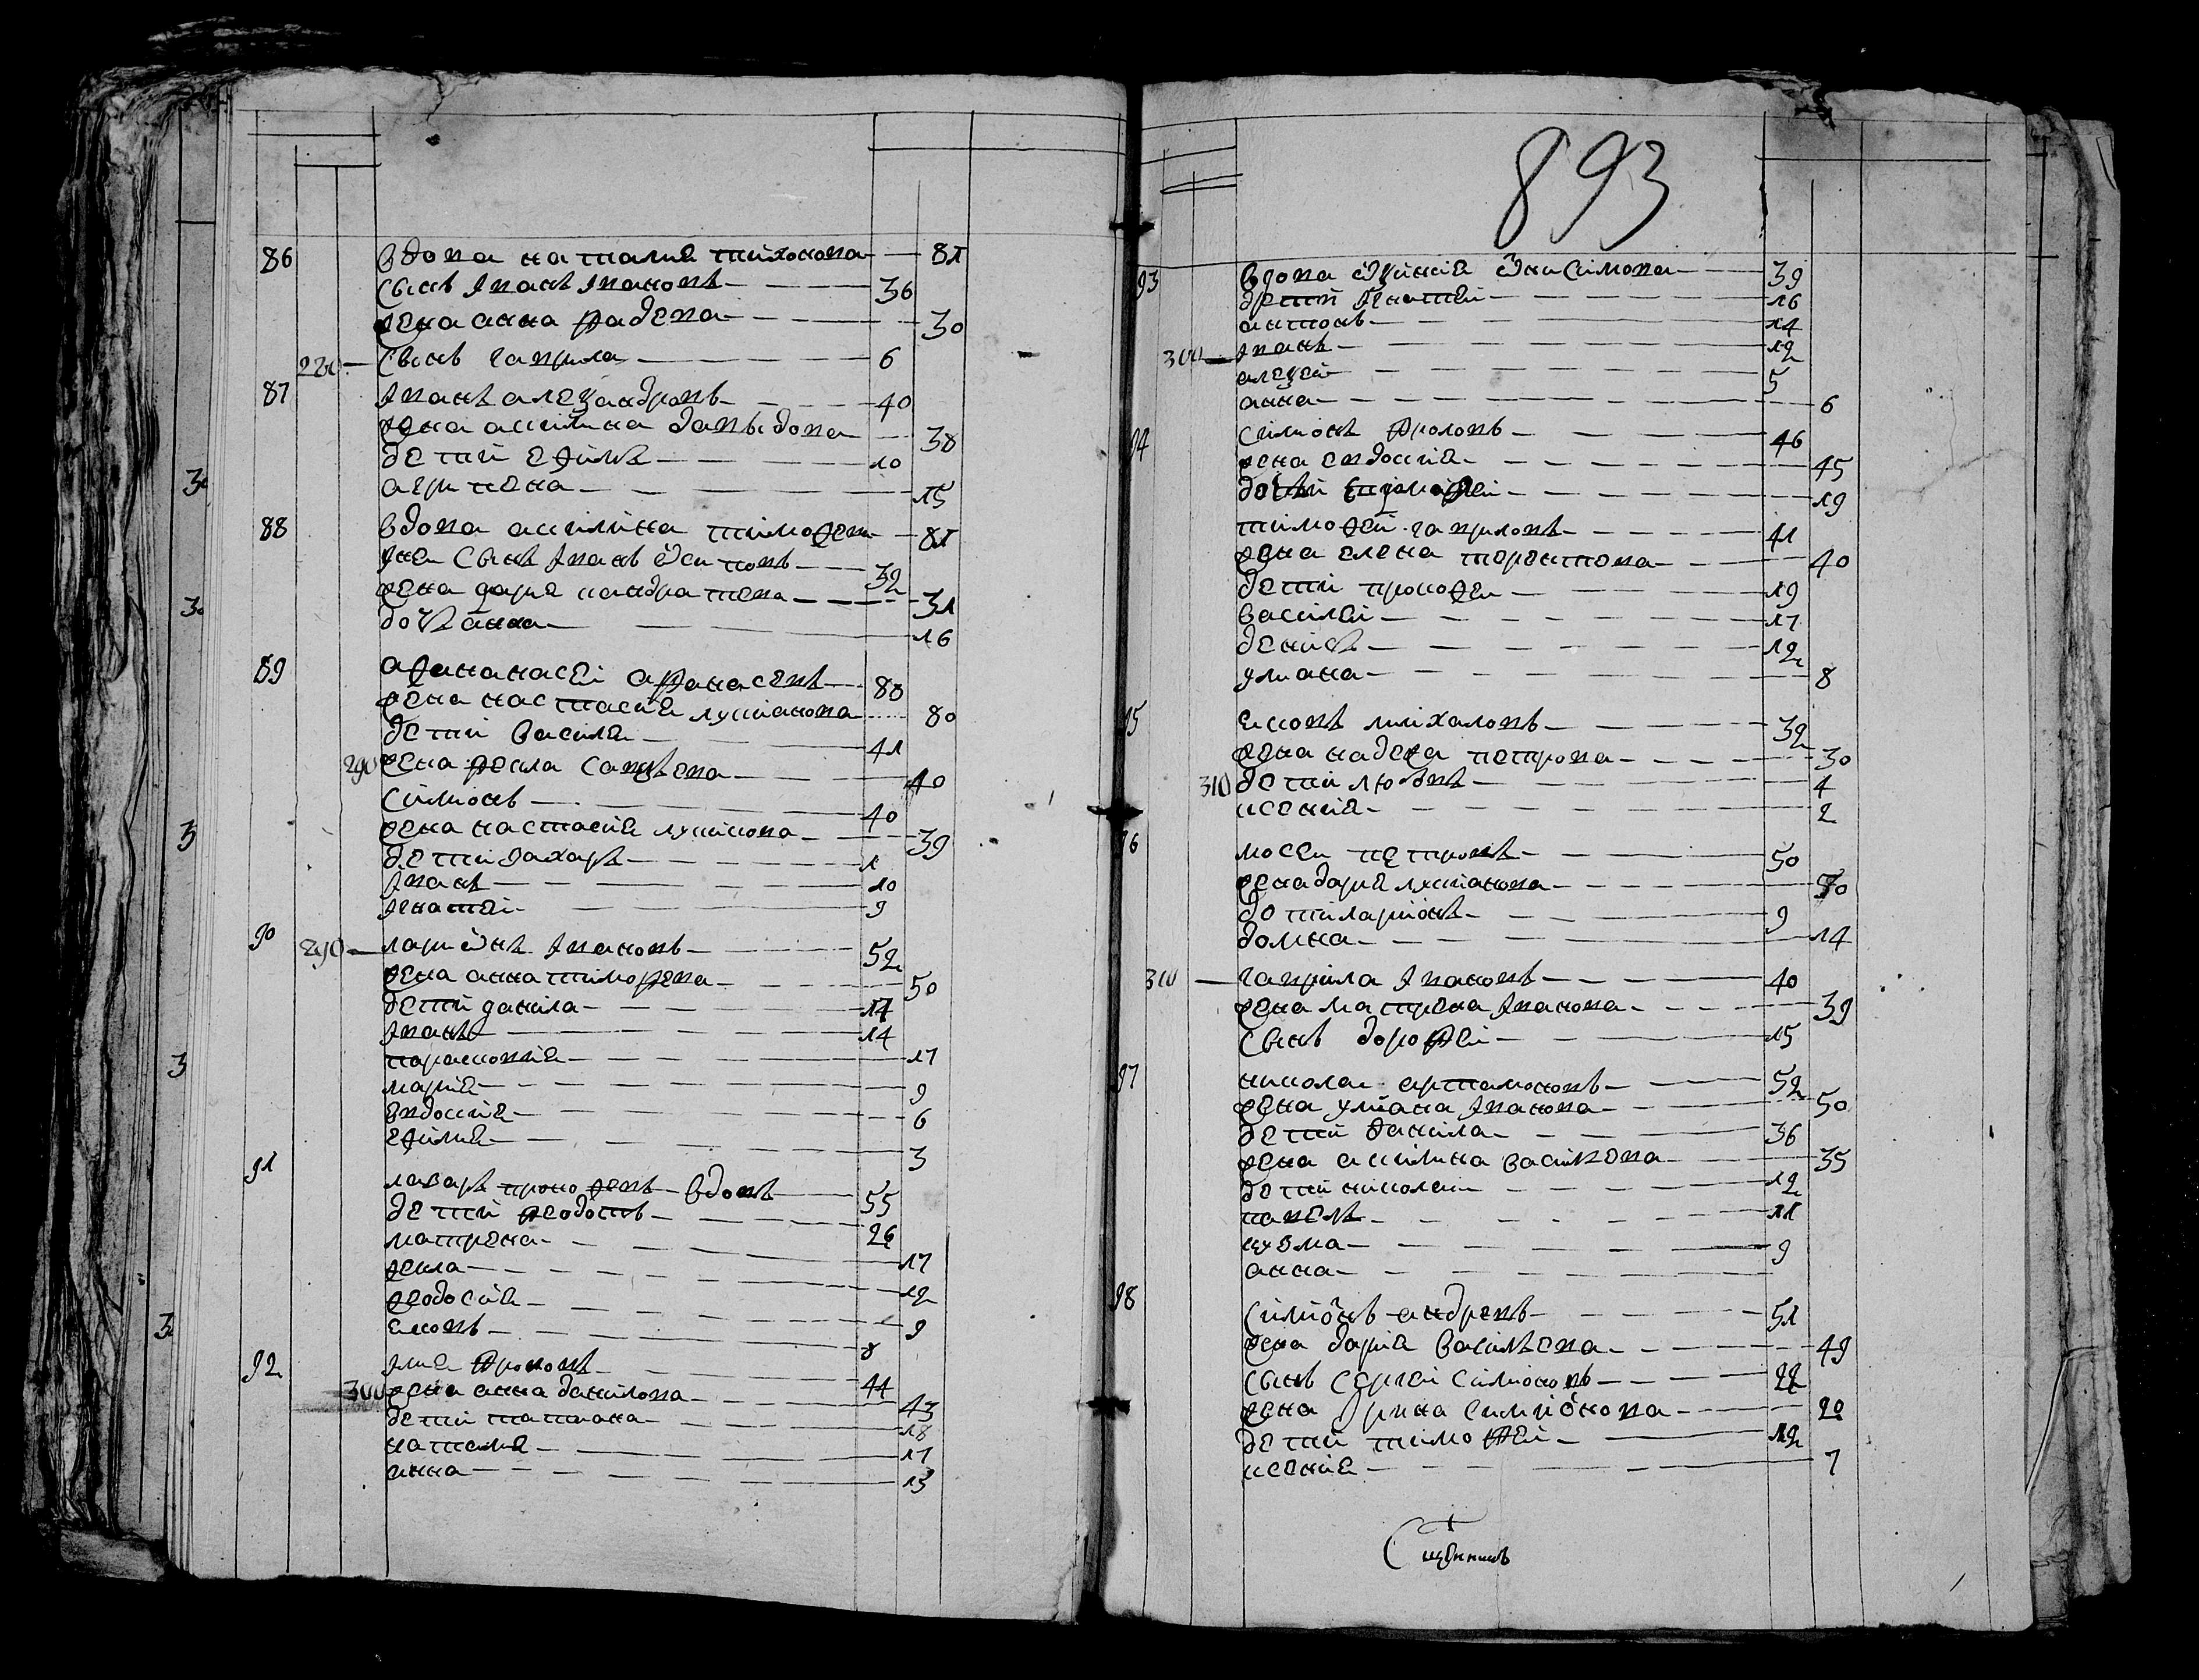 86 вдова наталия тихонова 81
сынъ иванъ ивановъ 36
жена анна фадева 30
280 сынъ гаврила 6
87 иванъ алеѯандровъ 40
жена акилина давыдова 38
дети ефимъ 10
агрипена 15
88 вдова акилина тимофеи 81
унеи сынъ иванъ осиповъ 32
жена дария кандратева 31
дочь анна 16
89 афанасеи афанасевъ 80
жена настасия лукианова 80
дети василеи 41
290 жена фекла савлева 40
симионъ 40
жена настасия лукинова 39
дети захаръ 1
иванъ 10
игнатеи 9
90 290 ларионъ ивановъ 52
жена анна тимофева 50
дети данила 17
иванъ 14
парасковия 17
мария 9
евдокия 6
ефимия 3
91 лазаръ прокофевъ вдовъ 55
дети федотъ 26
матрена 17
фекла 12
феодосия 9
яковъ 8
92 илия фроловъ 44
300 жена анна данилова 43
дети татиана 18
наталия 17
анна 13
893
93 вдова анисимова 39
дети игнатеи 16
антонъ 14
300 иванъ 12
алеѯеи 5
анна 6
94 симионъ фроловъ 46
жена евдокия 45
дочь 19
тимофеи гавриловъ 41
жена елена терентева 40
дети прокофеи 19
василеи 17
денисъ 12
улиана 8
95 яковъ михаловъ 32
жена надежа петрова 30
310 дети любовь 4
ксения 2
96 мосеи петровъ 50
жена дария лукианова 70
дети ларионъ 9
домна 14
310 гаврила ивановъ 40
жена матрена иванова 39
сынъ дорофеи 15
97 николаи артамоновъ 52
жена улиана иванова 50
дети данила 36
жена акилина васильева 35
дети николаи 12
павелъ 11
кузма 9
анна
98 симионъ андревъ 51
жена дария васильева 49
сынъ сергеи симионовъ 22
жена ирина симионова 20
дети тимофеи 12
ксения 7